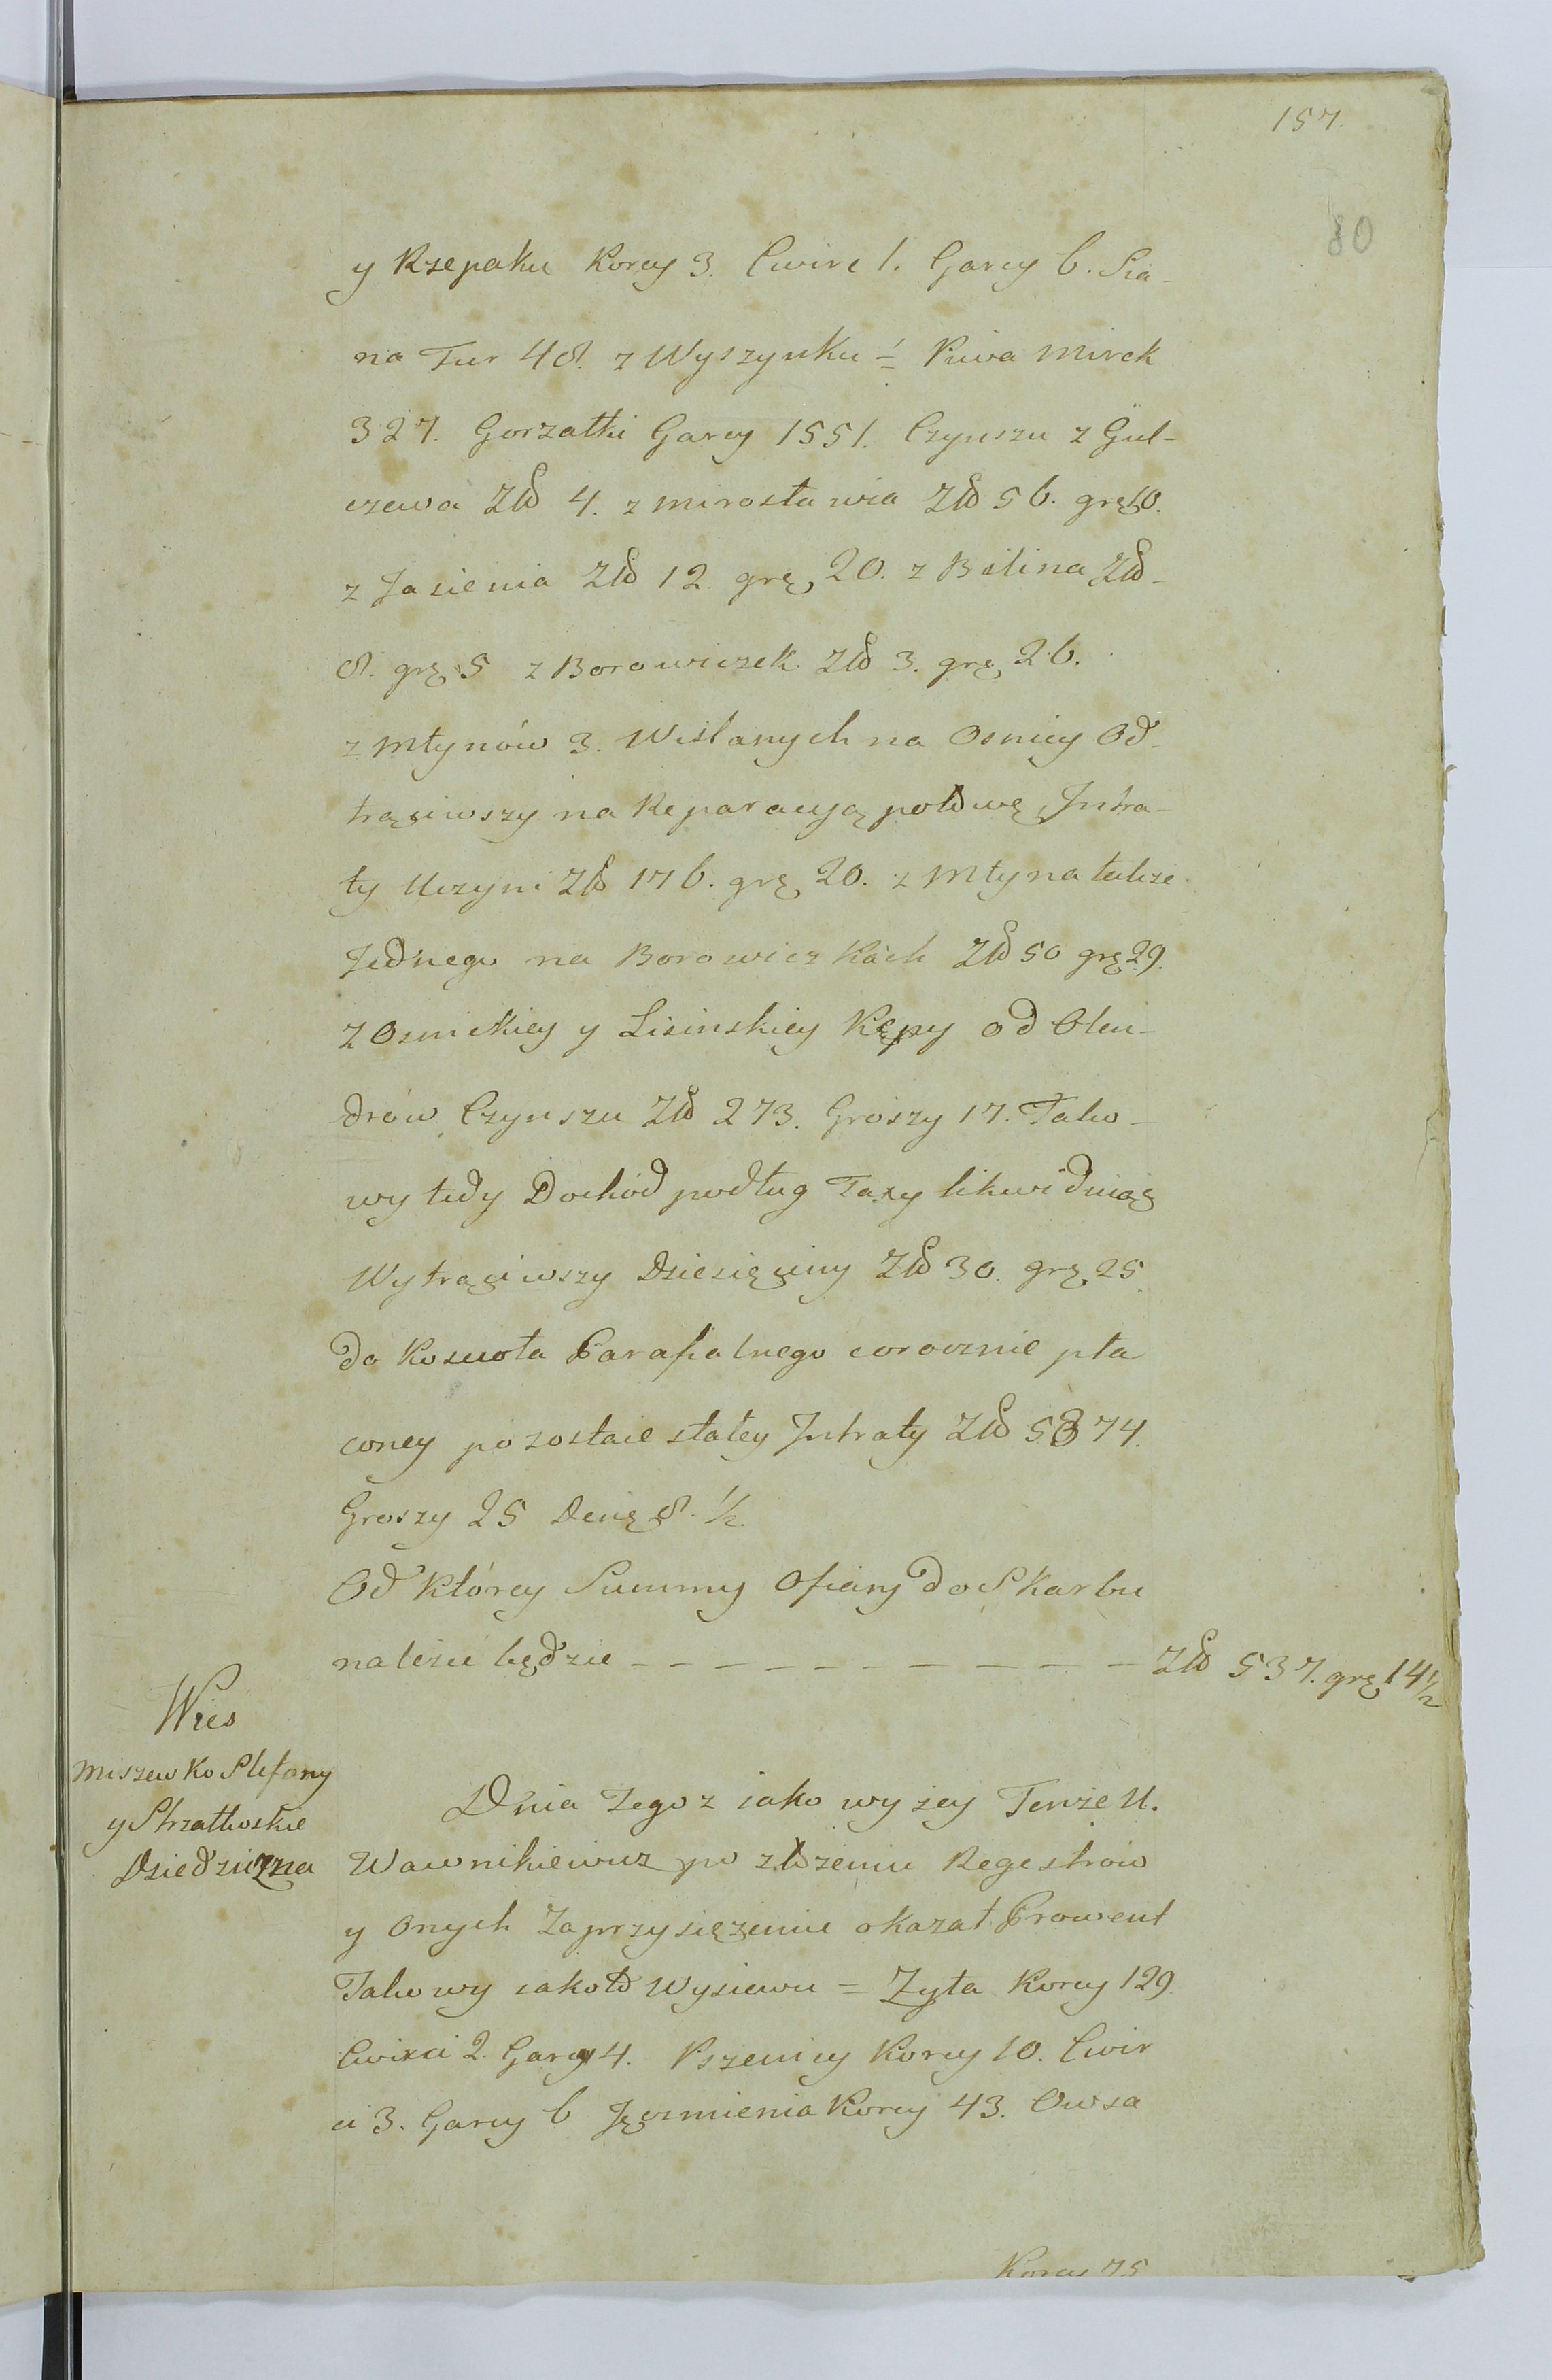 157.
80
y Rzepaku Korcy 3. Cwirć 1. Garcy 6. Sia-
na Fur 48. z Wyszynku = Piwa Mirek
327. Gorzałki Garcy 1551. Czynszu z Gul-
czewa Złł 4. z Mirosławia Złł 56. grę 10.
z Jasienia Złł 12. grę 20. z Bilina Złł
8. grę 5 z Borowiczek Złł 3. grę 26.
z Młynów 3. Wislanych na Osnicy Od-
trąciwszy na Reparacyą połowę Intra-
ty Uczyni Złł 176. grę 20. z Młyna także
Jednego na Borowiczkach Złł 50 grę 29.
z Osnickiey y Lisinskiey Kępy od Olen-
drów Czynszu Złł 273. Groszy 17. Tako-
wy tedy Dochód podług Taxy likwiduiąc
Wytrąciwszy Dziesięciny Złł 30. grę 25.
do Koscioła Parafialnego corocznie pła
coney pozostaie stałey Intraty Złł 5374.
Groszy 25 Denę 8. 1/2.
Od którey Summy Ofiary do Skarbu
należeć będzie - - - - - - - - - - - Złł 537. grę 14 1/2
Wies
Miszewko Stefany
y Strzałkoskie
Dziedziczna
Dnia Tegoz iako wyżey Tenże U.
Wawnikiewicz po złożeniu Regestrów
y Onych Zaprzysiężeniu okazał Prowent
Takowy iako to Wysiewu = Zyta Korcy 129
Cwirci 2. Garcy 4. Pszenicy Korcy 10. Cwir
ci 3. Garcy 6 Jęczmienia Korcy 43. Owsa
Korcy 75